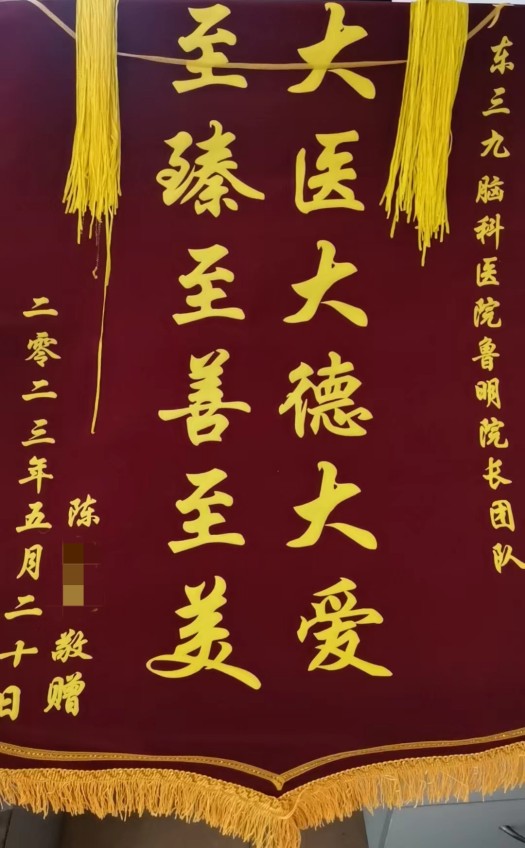 广东三九脑科医院鲁明院长团队
大医大德大爱
至臻至善至美
陈
敬赠
二零二三年五月二十日